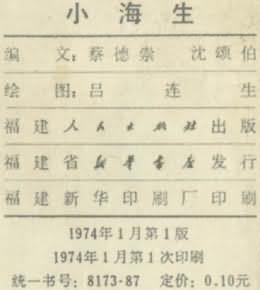 小海生
编 文：蔡德崇 沈颂伯
绘 图：吕连生
福建人民出版社出版
福建省新华书店发行
福建新华印刷厂印刷
1974年1月第1版
1974年1月第1次印刷
统一书号：8173·87 定价：0.10元